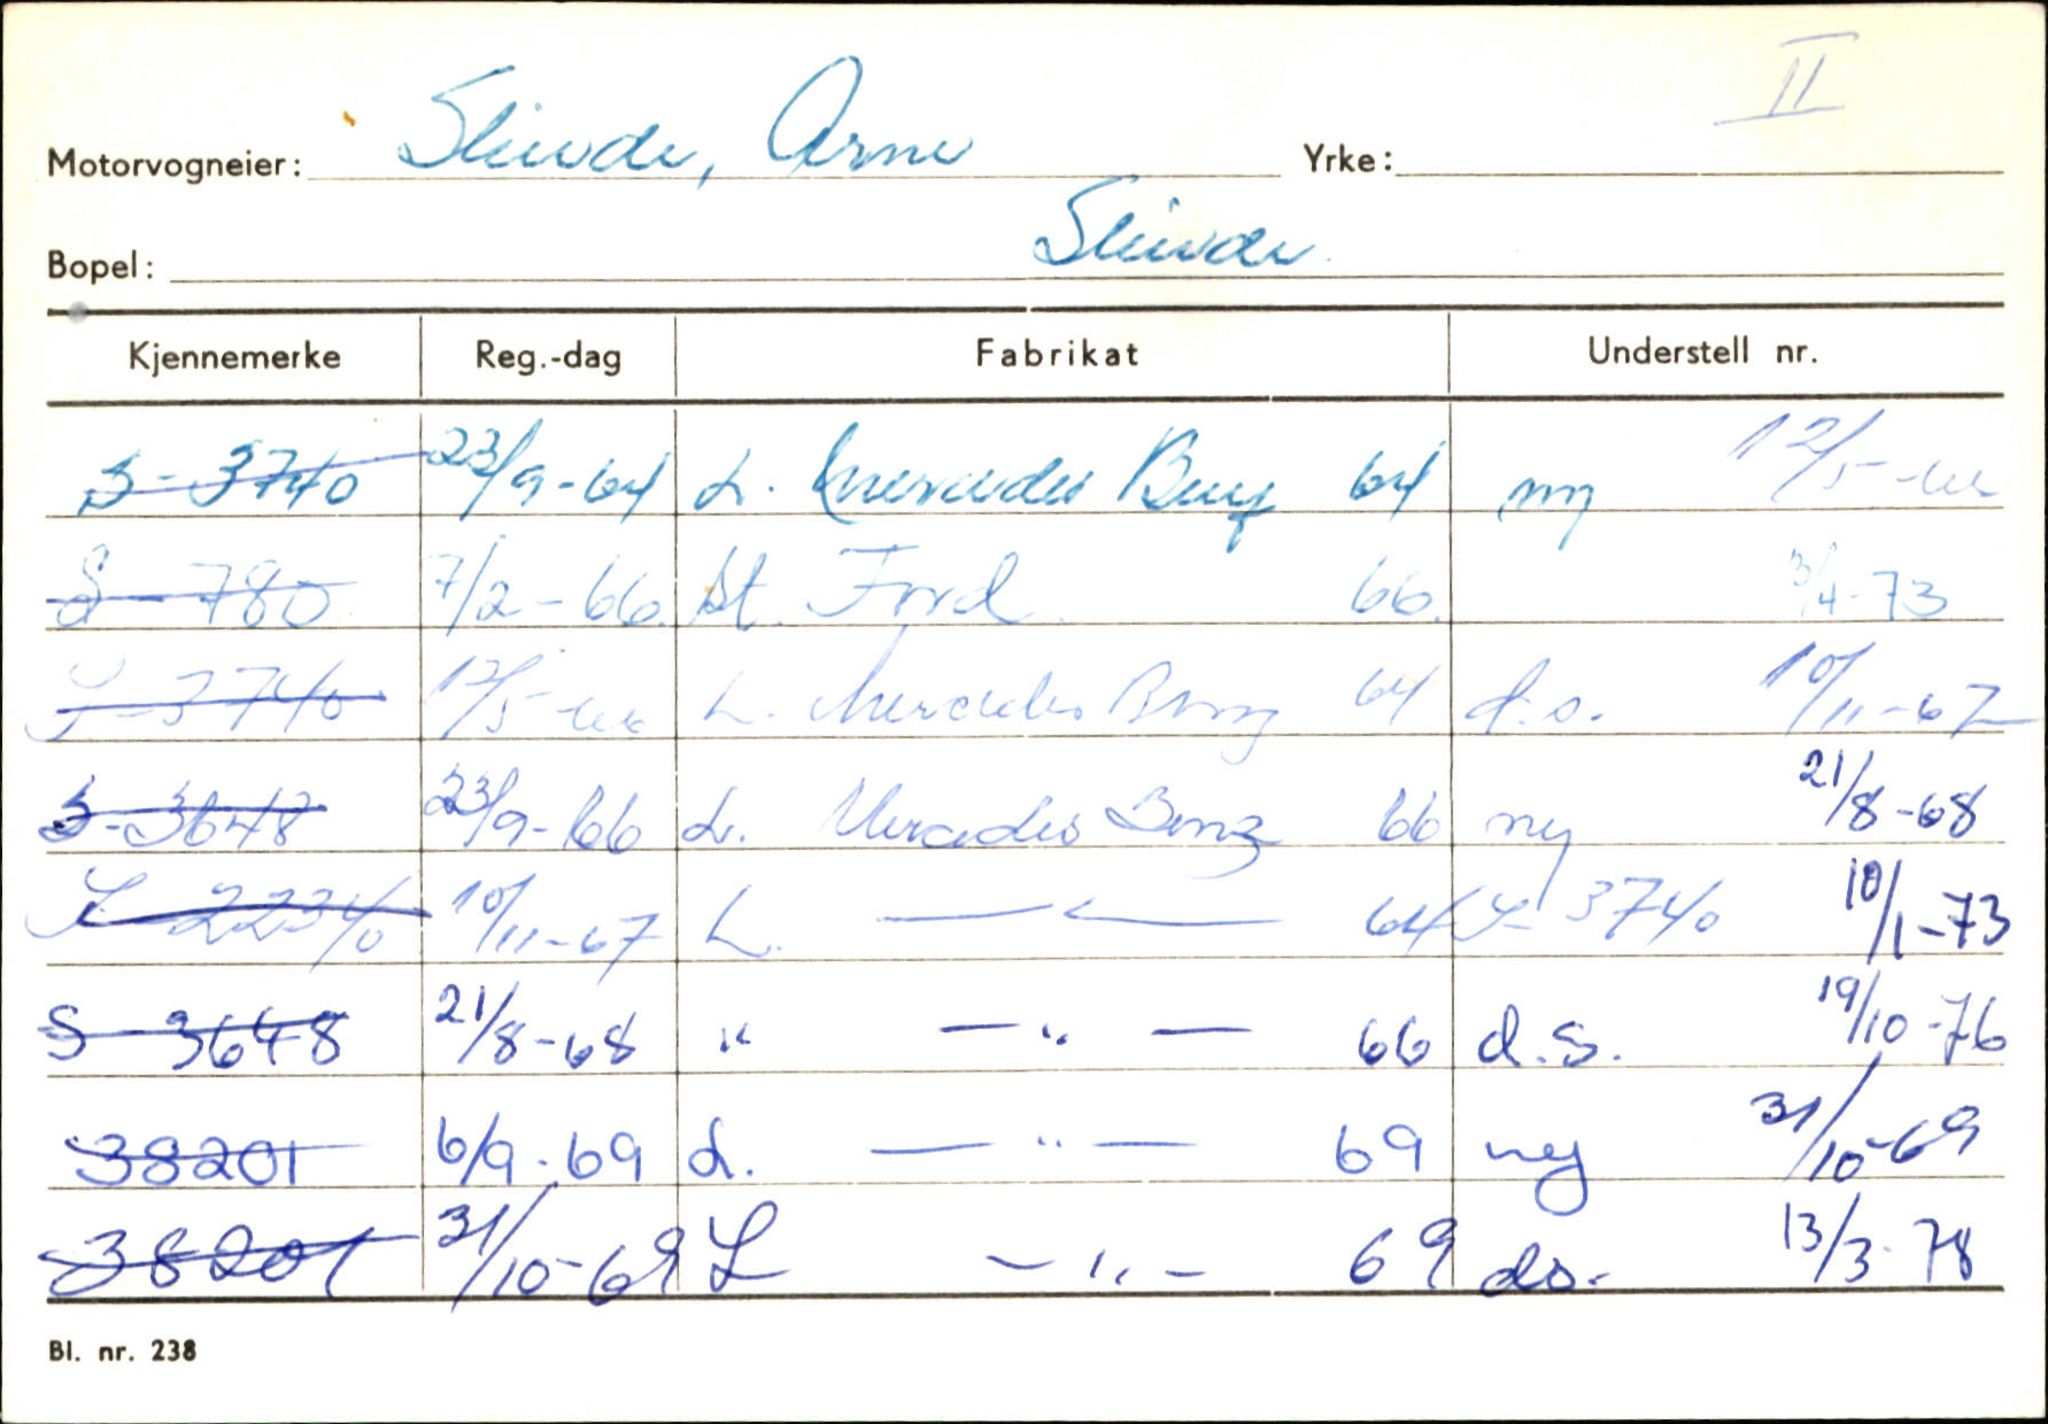 II
Motorvogneier: Slinde, Arne Yrke:
Bopel: Slinde
Kjennemerke Reg.-dag Fabrikat Understell nr.
S-3740 23/9-64 L. Mercedes Benz 64 ny 12/5-66
S-780 7/2-66. St. Ford 66. 3/4-73
S-3740 12/5-66 L. Mercedes Benz 64 d.s. 10/11-67
S-3648 23/9-66 L. Mercedes Benz 66 ny 21/8-68
S-22340 10/11-67 L. — " — 64 S-3740 10/1-73
S-3648 21/8-68 " — " — 66 d.s. 19/10-76
38201 6/9-69 L. — " — 69 ny 31/10-69
38201 31/10-69 L — " — 69 ds. 13/3-78
Bl. nr. 238